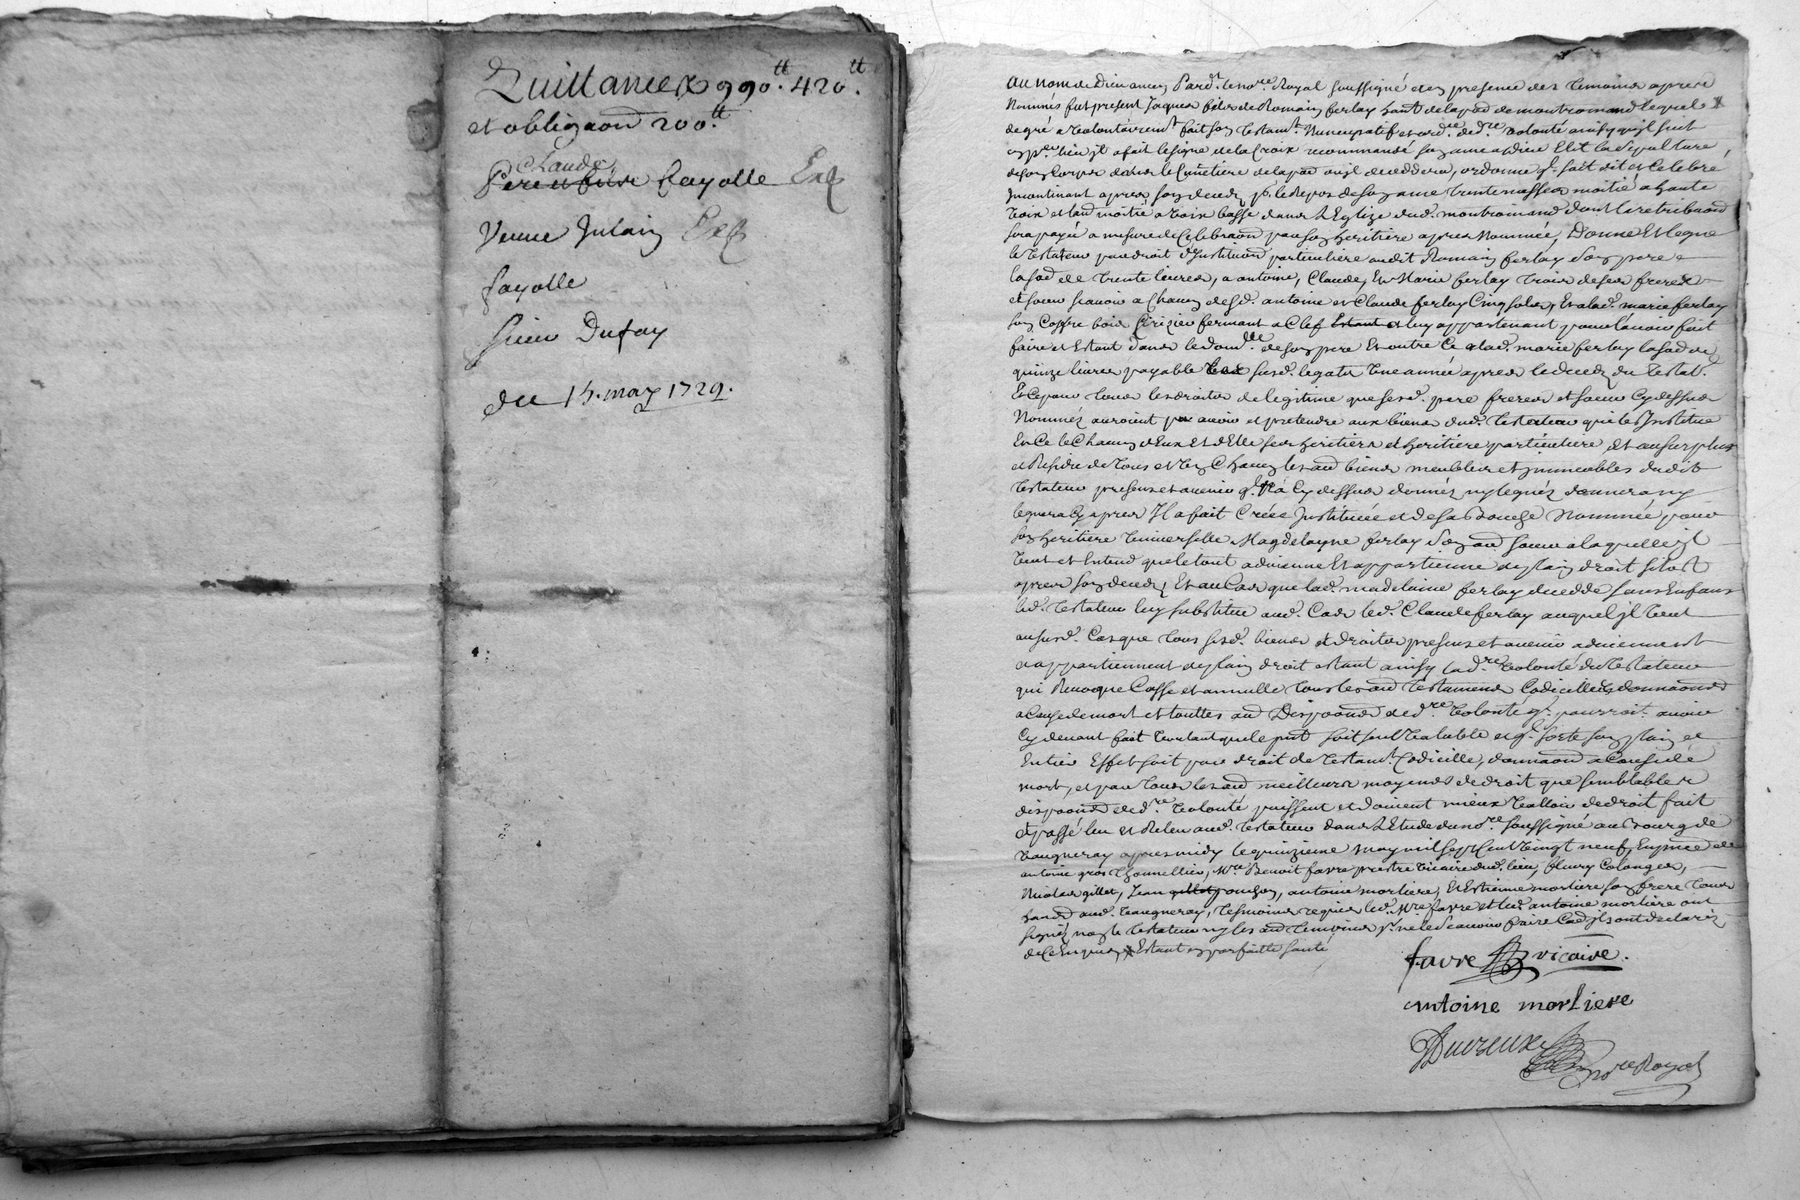 Quittances 990.tt 420.tt
et obligaon 200.tt
Claude
Pere et fils fayolle Exp
Veuve Julain Exp
fayolle
Sieur Dufay
du 15. may 1729.
Au nom de Dieu amen Pardt. le nore. Royal soussigné et en presence des temoins apres
Nommés fut present Jaques fils de Romain ferlay hant. de la par de montromand lequel
de gré a volontairemt. fait son testamt. Nuncupatif et ordre. de dre. volonté ainsy qu'il suit
Il a fait le signe de la Croix recommandé son ame a Dieu Elit la Sepulture
de son Corps dans le Cimetiere de la par ou il decedera, ordonne q. soit dit et celebré
Incontinant apres son deced pr. le Repos de son ame trente messes moitié a haute
voix et laud. moitié a voix basse dans L'Eglize dud. montromand dont la retribuaon
sera payé a mesure de Celebraon par son heritiere apres Nommée, Donne Et legue
le Testateur par droit d'Institution particuliere audit Romain ferlay son pere
la so.e de trente livres, a antoine, Claude, Et Marie ferlay trois de ses freres
et soeur scavoir a Chacun desd. antoine et Claude ferlay Cinq solz, Et a lad. marie ferlay
son Coffre bois Cerizier fermant a Clef Estant et luy appartenant pour l'avoir fait
faire et Estant dans le domlle. de son pere Et outre Ce a lad. marie ferlay la so.e de
quinze livres payable sesd. legats une année apres le deced du Testat.
Et Ce pour tous les droits de legitime que sesd. pere freres et soeur Cy dessus
Nommés auroient pu avoir et pretendre aux biens dud. testateur qui les Institue
En Ce le Chacun d'Eux Et d'Elle ses heritiers et heritiere particuliere Et au surplus
et Residu de tous et Un Chacun les aud. biens meubles et immeubles dudit
testateur presens et avenir q. n'a Cy dessus donnés ny legués donnera ny
leguera Cy apres Il a fait Créée Instituée et de sa Bouche Nommée pour
son heritiere universelle Magdelayne ferlay son aud. soeur a laquelle il
veut et Entend que le tout advienne Et appartienne de plain droit sitost
apres son deced, Et au Cas que lad. madelaine ferlay decedde sans Enfans
led. testateur luy substitue aud. Cas led. Claude ferlay auquel il veut
au susd. Cas que tous sesd. biens et droits presens et avenir adviennent
et appartiennent de plain droit estant ainsy sa dre. volonté du Testateur
qui Revoque Casse et annulle tous les aud. testamens Codicilles donnaons
a Cause de mort et touttes aud. Dispoons de dre. volonté q. pourroit. avoir
Cy devant fait voulant que le pnt soit seul valable et q. sorte son plain et
Entier Effet soit par droit de testamt. Codicille, donnaon a Cause de
mort, et par tous les aud. meilleurs moyens de droit que semblables
dispoons de dre. volonté puissent et doivent mieux valloir de droit fait
et passé leu et Releu aud. testateur dans L'Etude du nore. soussigné au Bourg de
Vaugneray apres midy le quinzieme may mil sept Cent vingt neuf, En pnce de
antoine gros thonnellier, Mre. Benoit favre prestre vicaire dud. lieu, fleury Colonges,
Nicolas gillet, Jean gillet ponson, antoine morliere, Et Estienne morliere son frere tous
hants aud. Vaugneray, tesmoins requis led. Mre favre et led. antoine morliere ont
signés non le testateur ny les aud. temoins pr. ne le scavoir faire Co.e ils ont declarés
de Ce Enquis, Estant en parfaitte santé
favre vicaire.
antoine morliere
Duvreux nore Royal